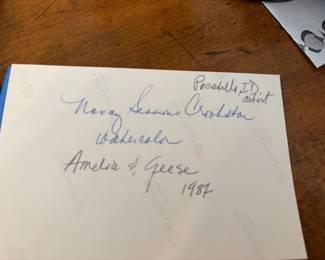 Pocatello, ID
artist
Nancy Sessions Crookston
Watercolor
Amelia & Geese
1987